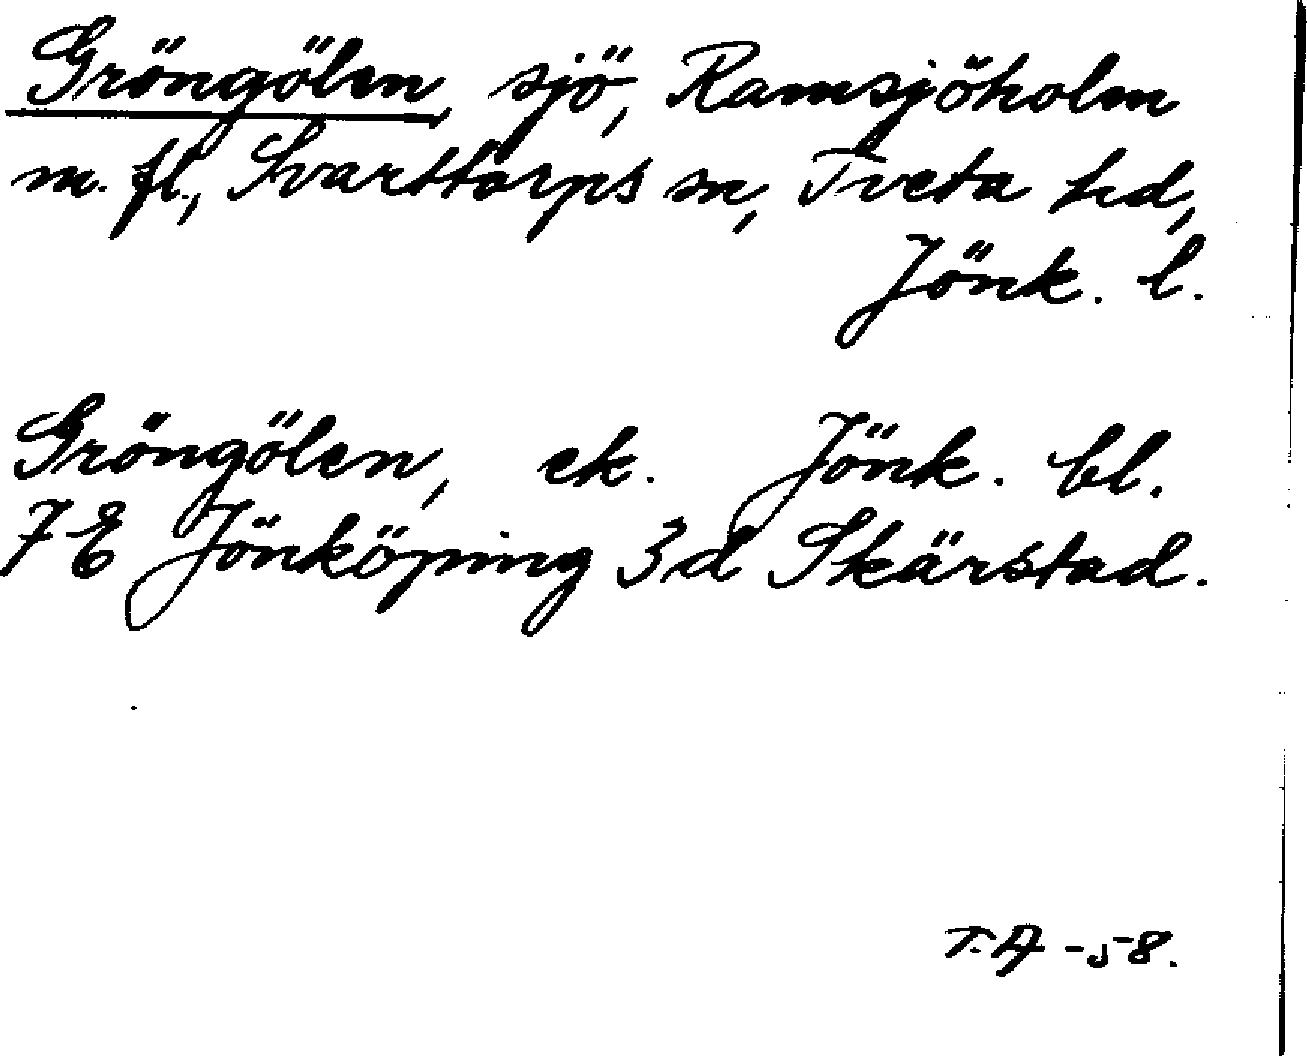 Gröngölen, sjö, Ramsjöholm
m. fl., Svarttorps sn, Tveta hd,
Jönk. l.
Gröngölen, ek. Jönk. bl.
7E Jönköping 3d Skärstad.
T.A -58.